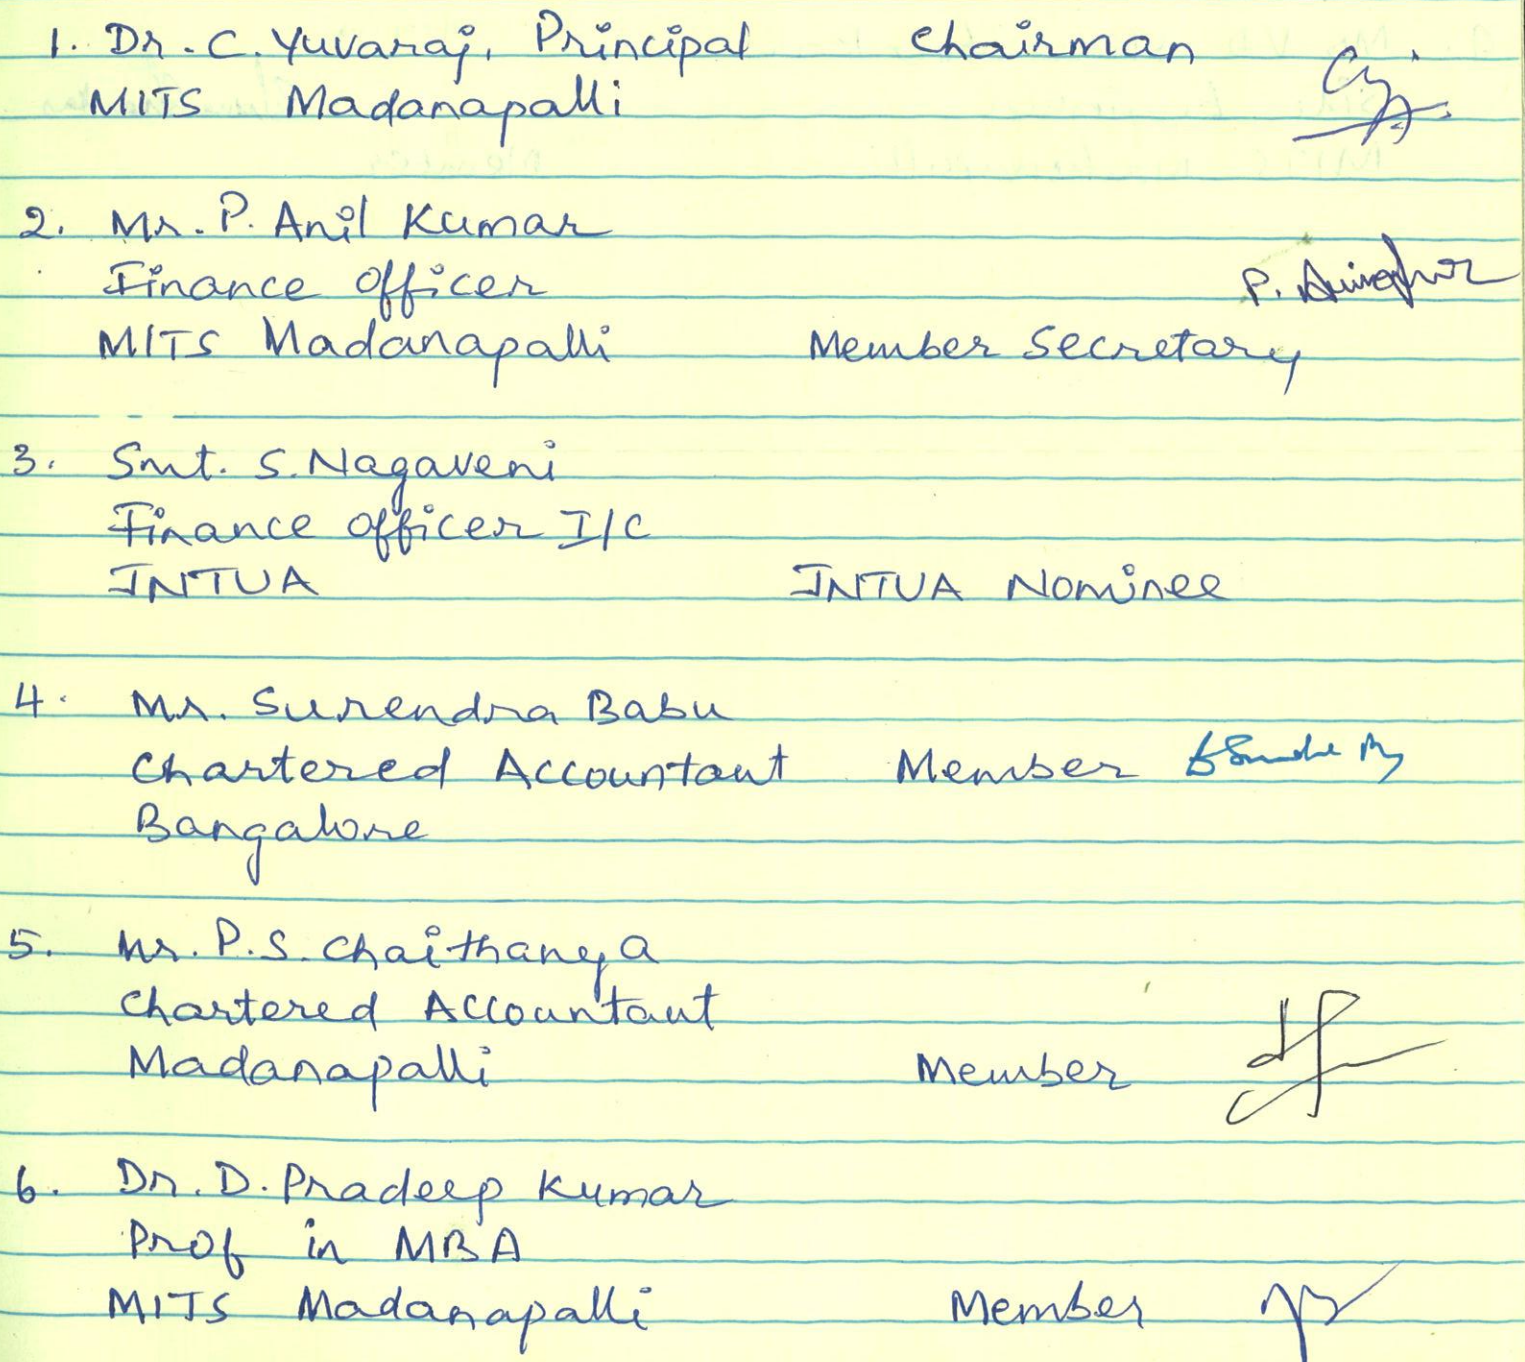 1. Dr. C. Yuvaraj, Principal Chairman
MITS Madanapalli
2. Mr. P. Anil Kumar
Finance Officer
MITS Madanapalli Member Secretary
3. Smt. S. Nagaveni
Finance Officer I/C
JNTUA JNTUA Nominee
4. Mr. Surendra Babu
Chartered Accountant Member
Bangalore
5. Mr. P.S. Chaithanya
Chartered Accountant
Madanapalli Member
6. Dr. D. Pradeep Kumar
Prof in MBA
MITS Madanapalli Member